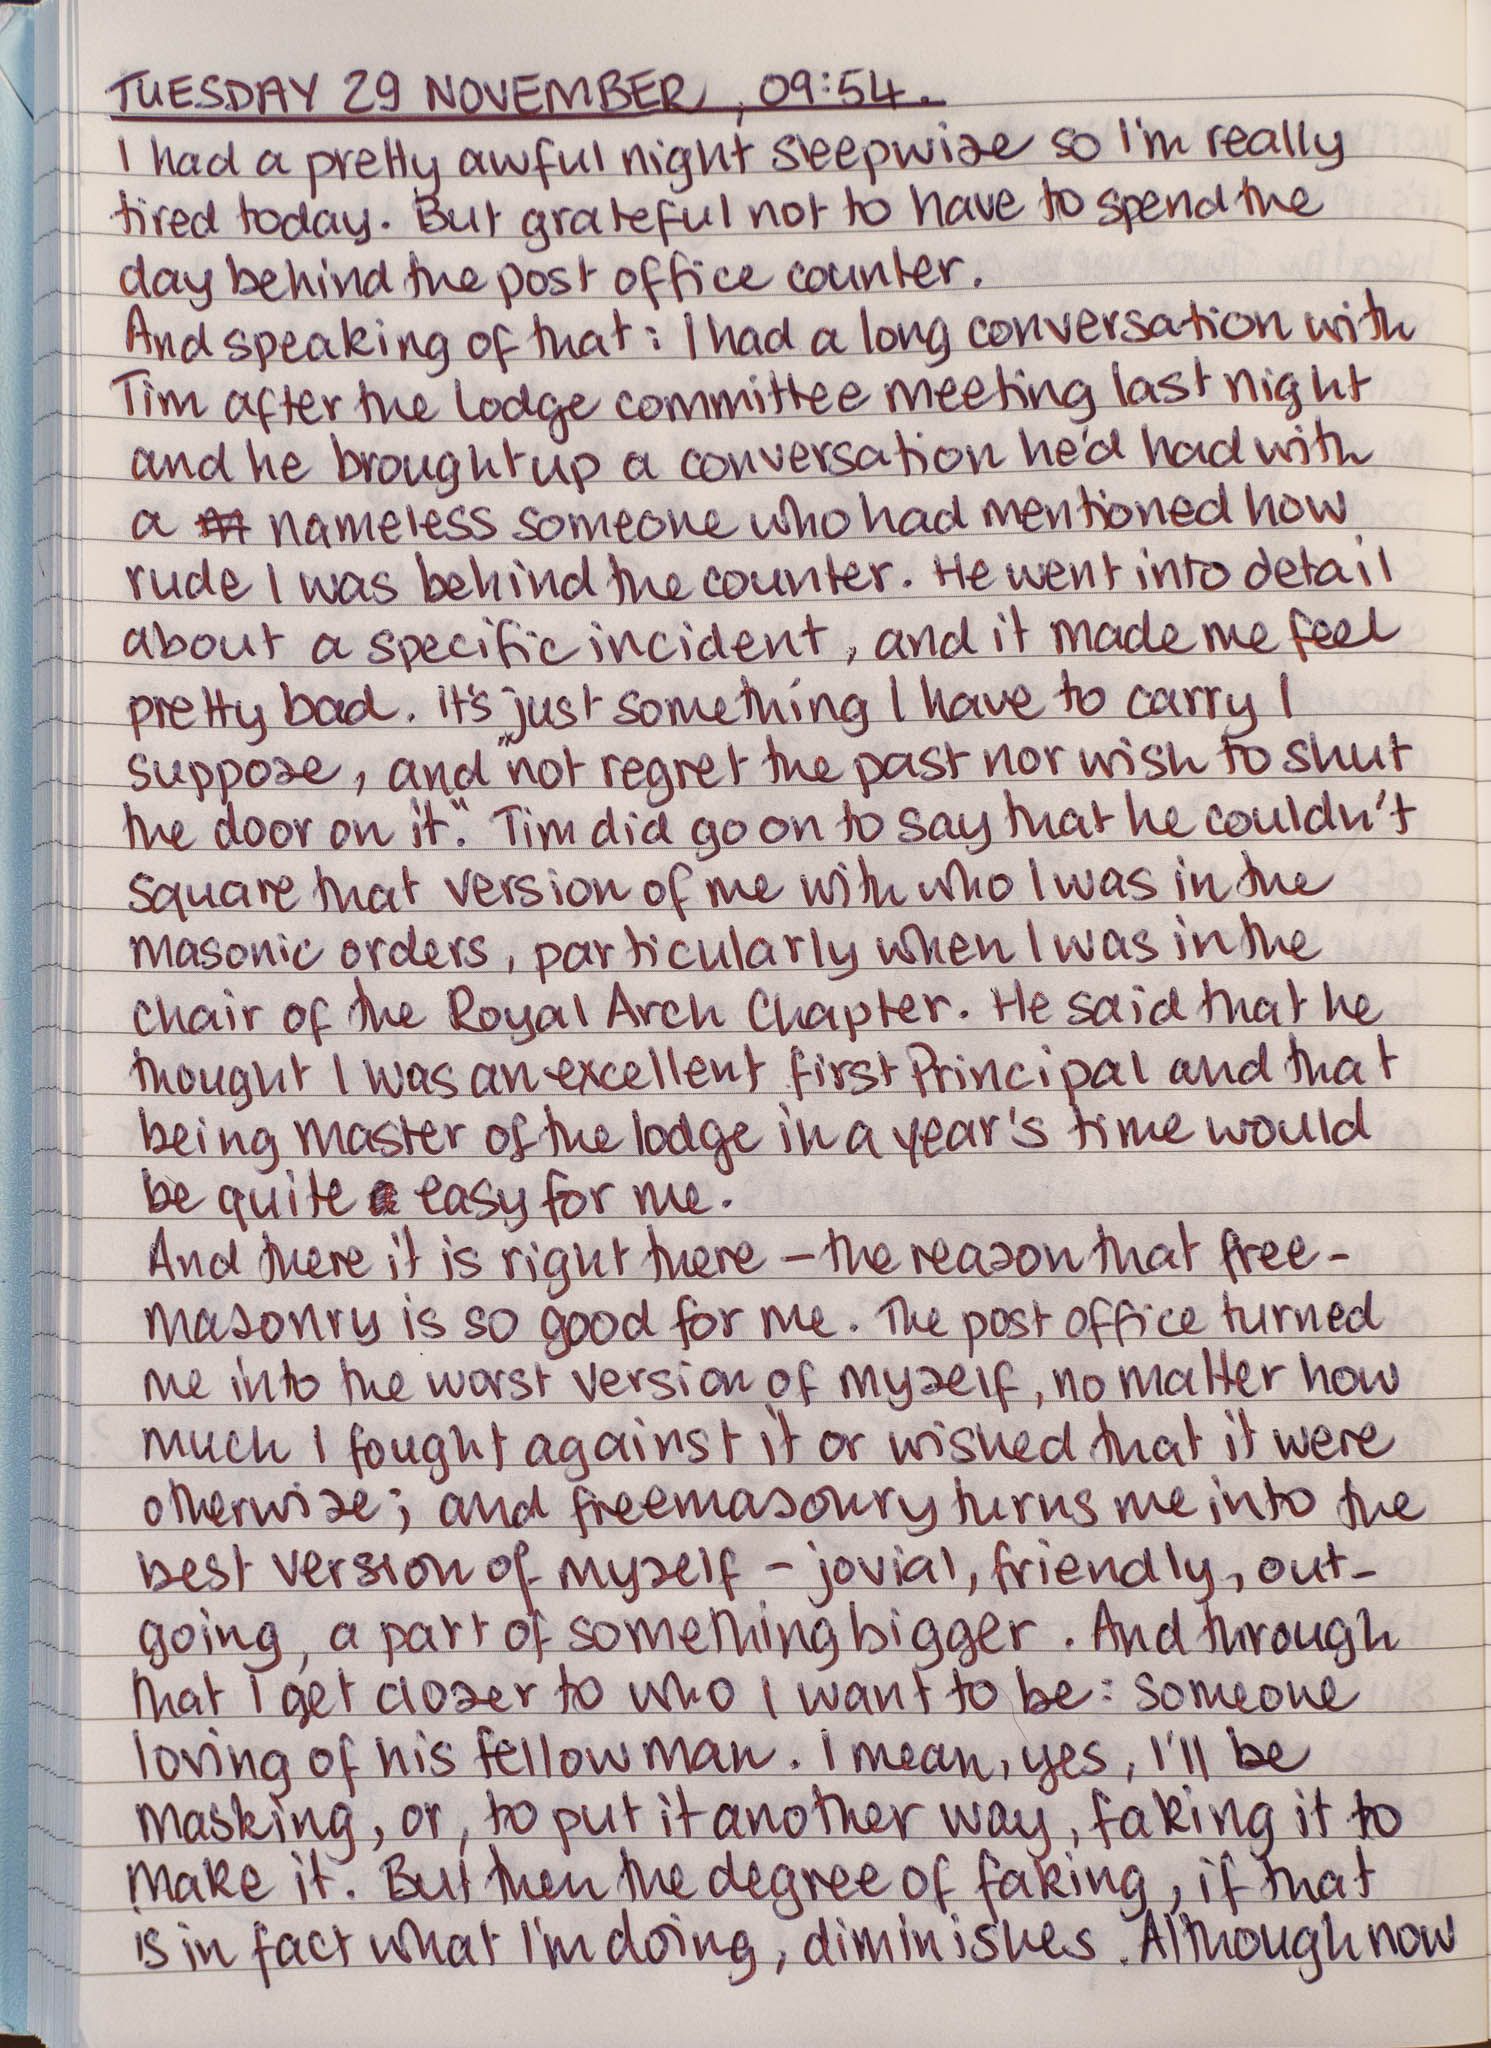 TUESDAY 29 NOVEMBER, 09:54.
I had a pretty awful night sleepwise so I'm really
tired today. But grateful not to have to spend the
day behind the post office counter.
And speaking of that: I had a long conversation with
Tim after the lodge committee meeting last night
and he brought up a conversation he'd had with
a nameless someone who had mentioned how
rude I was behind the counter. He went into detail
about a specific incident, and it made me feel
pretty bad. It's just something I have to carry I
suppose, and "not regret the past nor wish to shut
the door on it." Tim did go on to say that he couldn't
square that version of me with who I was in the
masonic orders, particularly when I was in the
chair of the Royal Arch Chapter. He said that he
thought I was an excellent first Principal and that
being master of the lodge in a year's time would
be quite easy for me.
And there it is right there – the reason that free-
masonry is so good for me. The post office turned
me into the worst version of myself, no matter how
much I fought against it or wished that it were
otherwise; and freemasonry turns me into the
best version of myself – jovial, friendly, out-
going, a part of something bigger. And through
that I get closer to who I want to be: someone
loving of his fellow man. I mean, yes, I'll be
masking, or, to put it another way, faking it to
make it. But then the degree of faking, if that
is in fact what I'm doing, diminishes. Although now